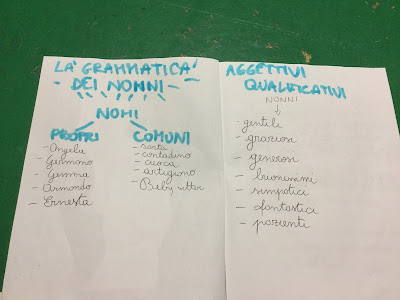 LA GRAMMATICA
DEI NONNI
NOMI
PROPRI
- Angela
- Germano
- Gemma
- Armando
- Ernesta
COMUNI
- sarta
- contadino
- cuoca
- artigiano
- Baby sitter
AGGETTIVI
QUALIFICATIVI
NONNI
- gentili
- graziosi
- generosi
- buonissimi
- simpatici
- fantastici
- pazienti